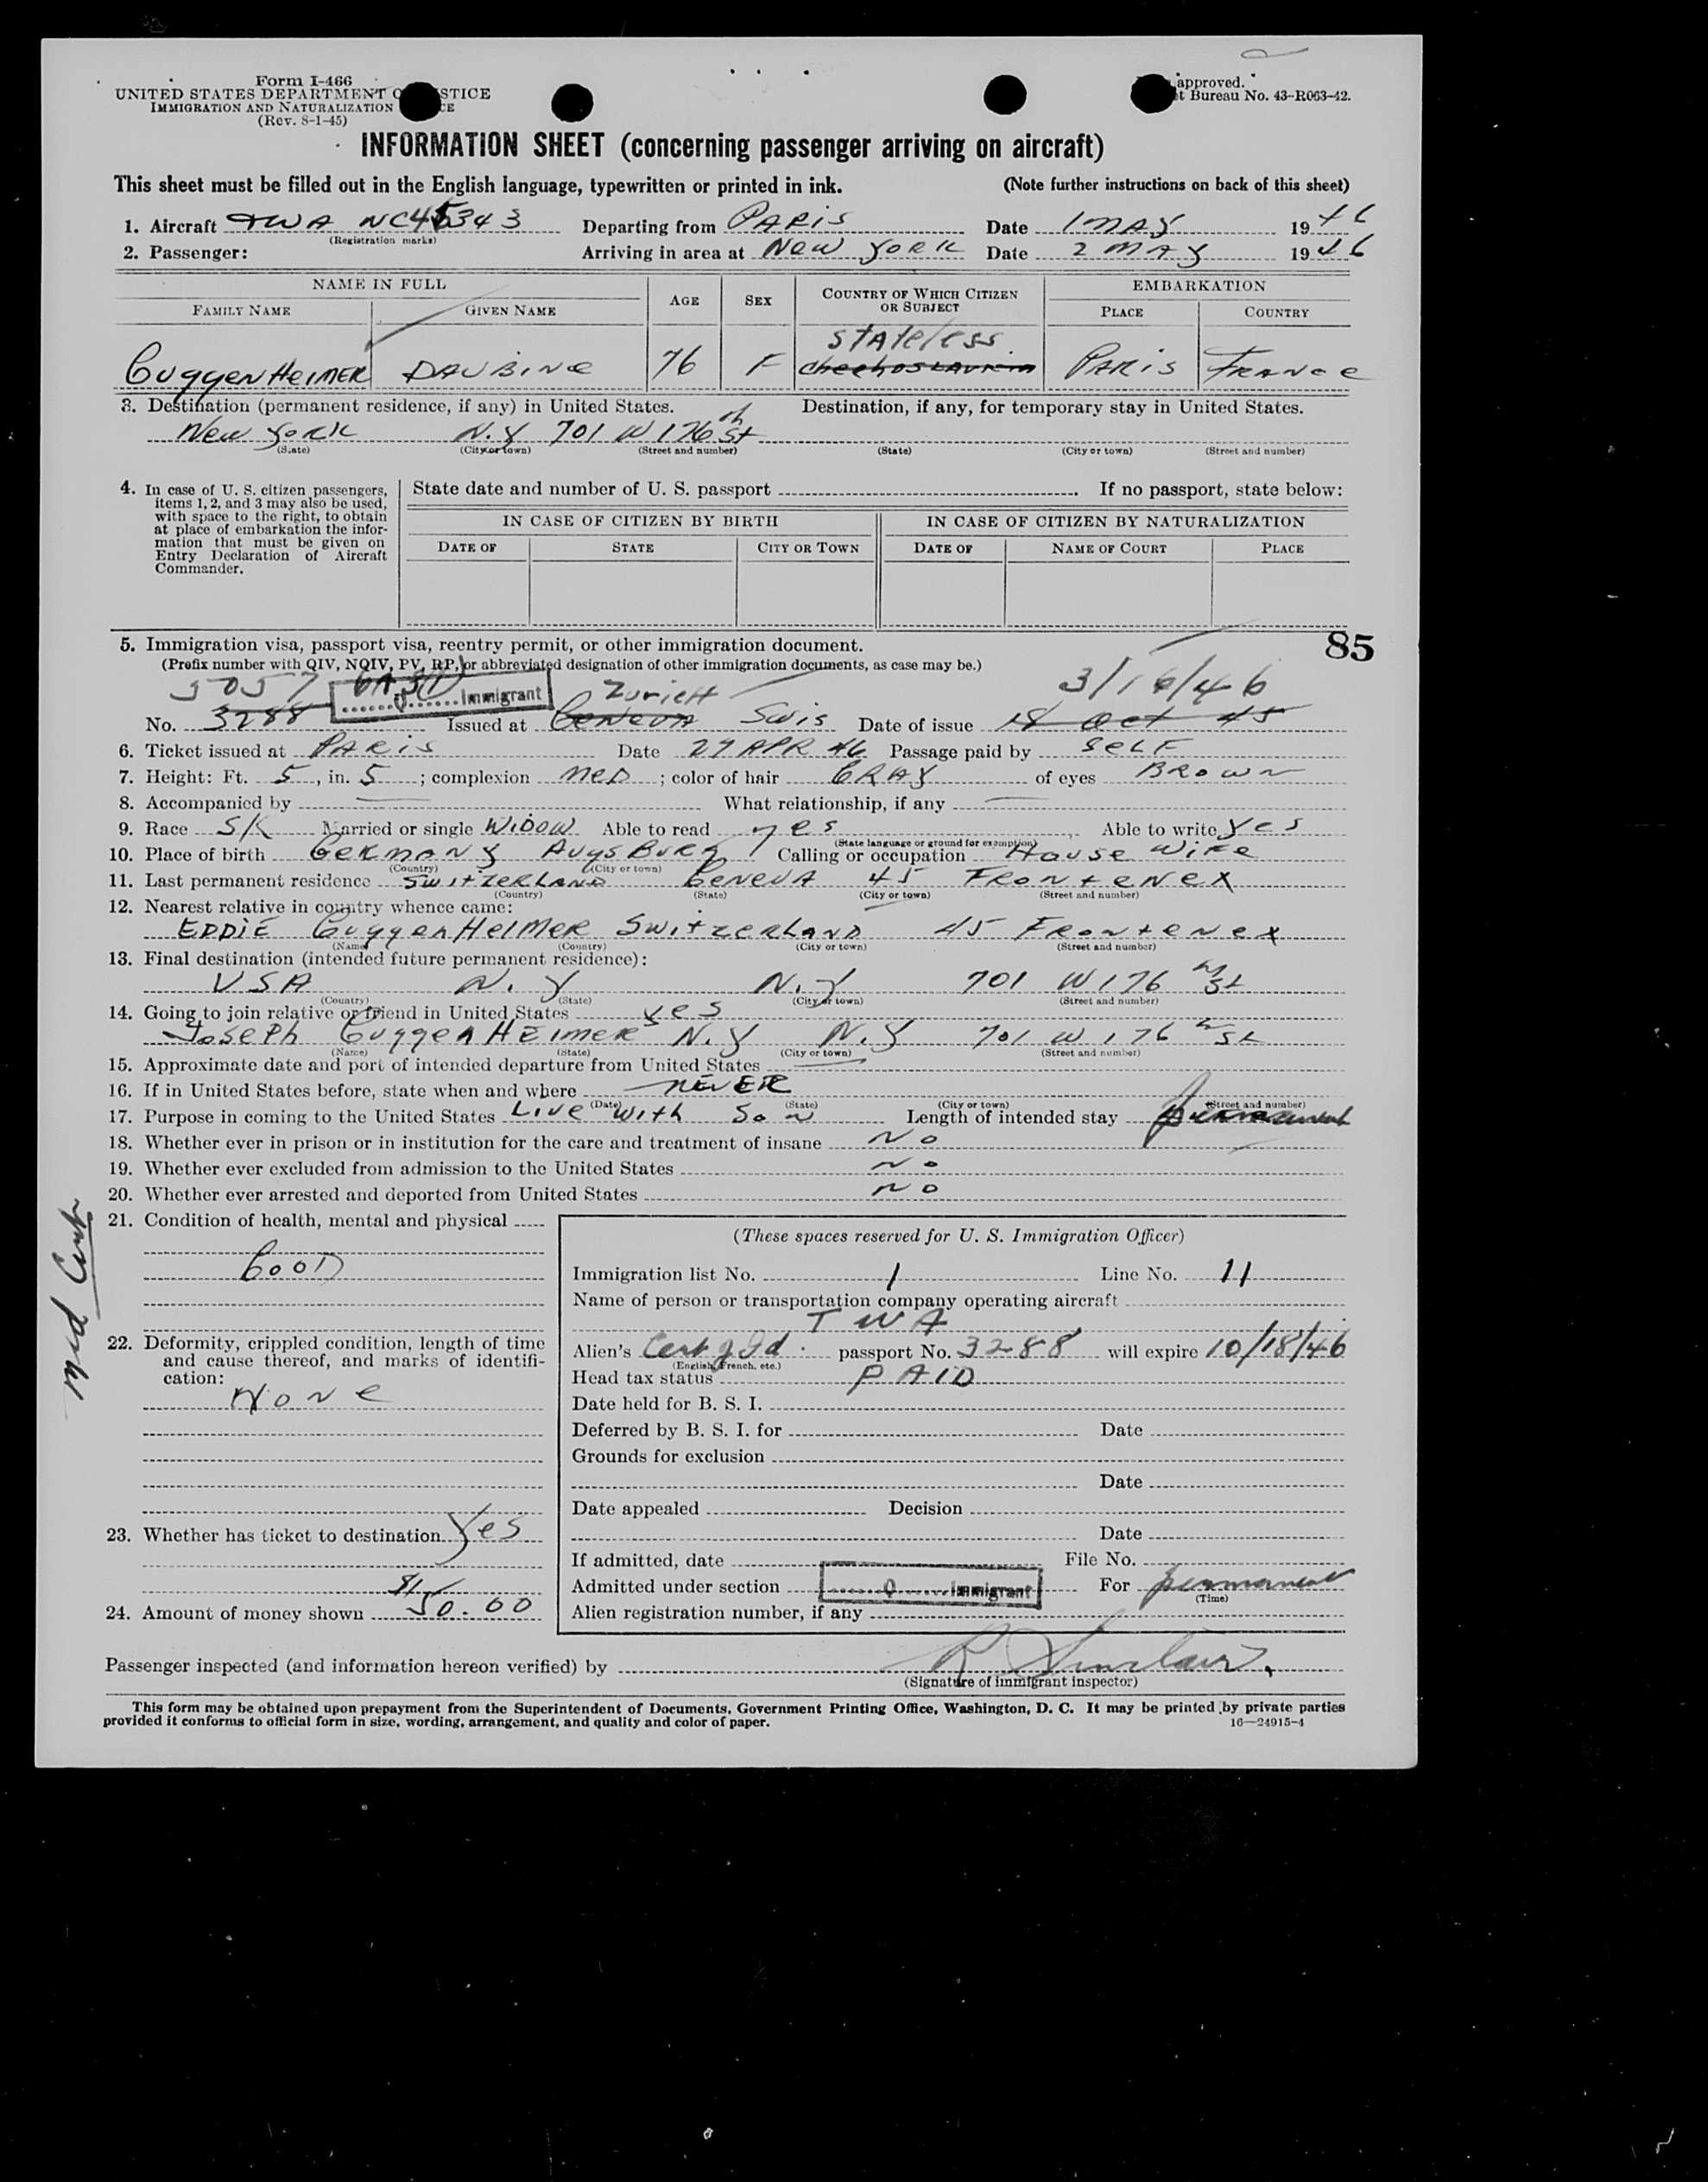 Form I-466
UNITED STATES DEPARTMENT O STICE
IMMIGRATION AND NATURALIZATION CE
(Rev. 8-1-45)
approved.
t Bureau No. 43-R063-42.
INFORMATION SHEET (concerning passenger arriving on aircraft)
This sheet must be filled out in the English language, typewritten or printed in ink. (Note further instructions on back of this sheet)
1. Aircraft TWA NC45343 Departing from PARIS Date 1 MAY 1946
(Registration marks)
2. Passenger: Arriving in area at NEW YORK Date 2 MAY 1946
NAME IN FULL AGE SEX COUNTRY OF WHICH CITIZEN OR SUBJECT EMBARKATION
FAMILY NAME GIVEN NAME PLACE COUNTRY
Stateless
GuggenHeimer DAUBINE 76 F chechoslavkia PARIS FRANCE
3. Destination (permanent residence, if any) in United States. Destination, if any, for temporary stay in United States.
New York N.Y 701 W 176th St
(State) (City or town) (Street and number) (State) (City or town) (Street and number)
4. In case of U. S. citizen passengers, items 1, 2, and 3 may also be used, with space to the right, to obtain at place of embarkation the information that must be given on Entry Declaration of Aircraft Commander.
State date and number of U. S. passport . If no passport, state below:
IN CASE OF CITIZEN BY BIRTH IN CASE OF CITIZEN BY NATURALIZATION
DATE OF STATE CITY OR TOWN DATE OF NAME OF COURT PLACE
85
5. Immigration visa, passport visa, reentry permit, or other immigration document.
(Prefix number with QIV, NQIV, PV, RP, or abbreviated designation of other immigration documents, as case may be.)
5057 Q Immigrant Zurich 3/16/46
No. 3288 Issued at Geneva Swis Date of issue 18 Oct 45
6. Ticket issued at PARIS Date 27 APR 46 Passage paid by SELF
7. Height: Ft. 5, in. 5; complexion MED; color of hair GRAY of eyes BROWN
8. Accompanied by What relationship, if any
9. Race S/K Married or single WIDOW Able to read yes, Able to write yes
(State language or ground for exemption)
10. Place of birth GERMANY AUGSBURG Calling or occupation House Wife
(Country) (City or town)
11. Last permanent residence SWITZERLAND GENEVA 45 FRONTENEX
(Country) (State) (City or town) (Street and number)
12. Nearest relative in country whence came:
EDDIE GuggenHeimer SWITZERLAND 45 FRONTENEX
(Name) (Country) (City or town) (Street and number)
13. Final destination (intended future permanent residence):
USA N.Y N.Y 701 W 176 th St
(Country) (State) (City or town) (Street and number)
14. Going to join relative or friend in United States yes
Joseph GuggenHeimer N.Y N.Y 701 W 176 th St
(Name) (State) (City or town) (Street and number)
15. Approximate date and port of intended departure from United States
16. If in United States before, state when and where NEVER
(Date) (State) (City or town) (Street and number)
17. Purpose in coming to the United States Live with Son Length of intended stay Permanent
18. Whether ever in prison or in institution for the care and treatment of insane No
19. Whether ever excluded from admission to the United States No
20. Whether ever arrested and deported from United States No
Med Cert
21. Condition of health, mental and physical
GOOD
22. Deformity, crippled condition, length of time and cause thereof, and marks of identification:
None
23. Whether has ticket to destination Yes
24. Amount of money shown 50.00
(These spaces reserved for U. S. Immigration Officer)
Immigration list No. 1 Line No. 11
Name of person or transportation company operating aircraft
TWA
Alien's Cert of Id. passport No. 3288 will expire 10/18/46
(English, French, etc.)
Head tax status PAID
Date held for B. S. I.
Deferred by B. S. I. for Date
Grounds for exclusion
Date
Date appealed Decision
Date
If admitted, date File No.
Admitted under section Q Immigrant For permanent
(Time)
Alien registration number, if any
Passenger inspected (and information hereon verified) by R Sinclair
(Signature of immigrant inspector)
This form may be obtained upon prepayment from the Superintendent of Documents, Government Printing Office, Washington, D. C. It may be printed by private parties
provided it conforms to official form in size, wording, arrangement, and quality and color of paper. 16—24915-4